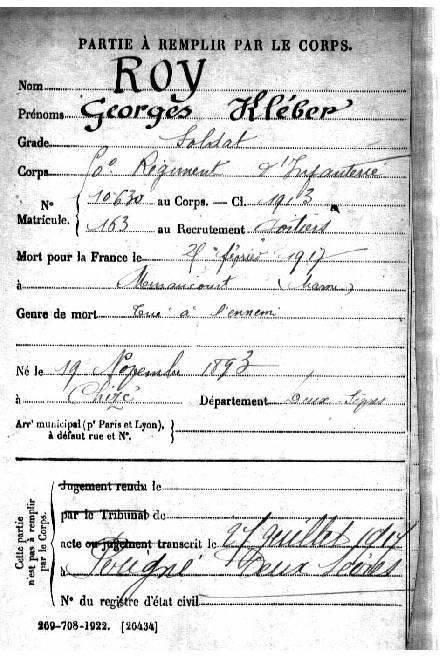 PARTIE À REMPLIR PAR LE CORPS.
Nom ROY
Prénoms Georges Kléber
Grade Soldat
Corps Régiment d'Infanterie
N° Matricule. 10630 au Corps. — Cl. 1913
163 au Recrutement Poitiers
Mort pour la France le février 1917
à (Marne)
Genre de mort Tué à l'ennemi
Né le 19 Novembre 1893
à Chizé Département Deux-Sèvres
Arr' municipal (p' Paris et Lyon),
à défaut rue et N°.
Cette partie n'est pas à remplir par le Corps.
Jugement rendu le
par le Tribunal de
acte ou jugement transcrit le 27 juillet 1917
à Périgné Deux Sèvres
N° du registre d'état civil
269-708-1922. [26434]